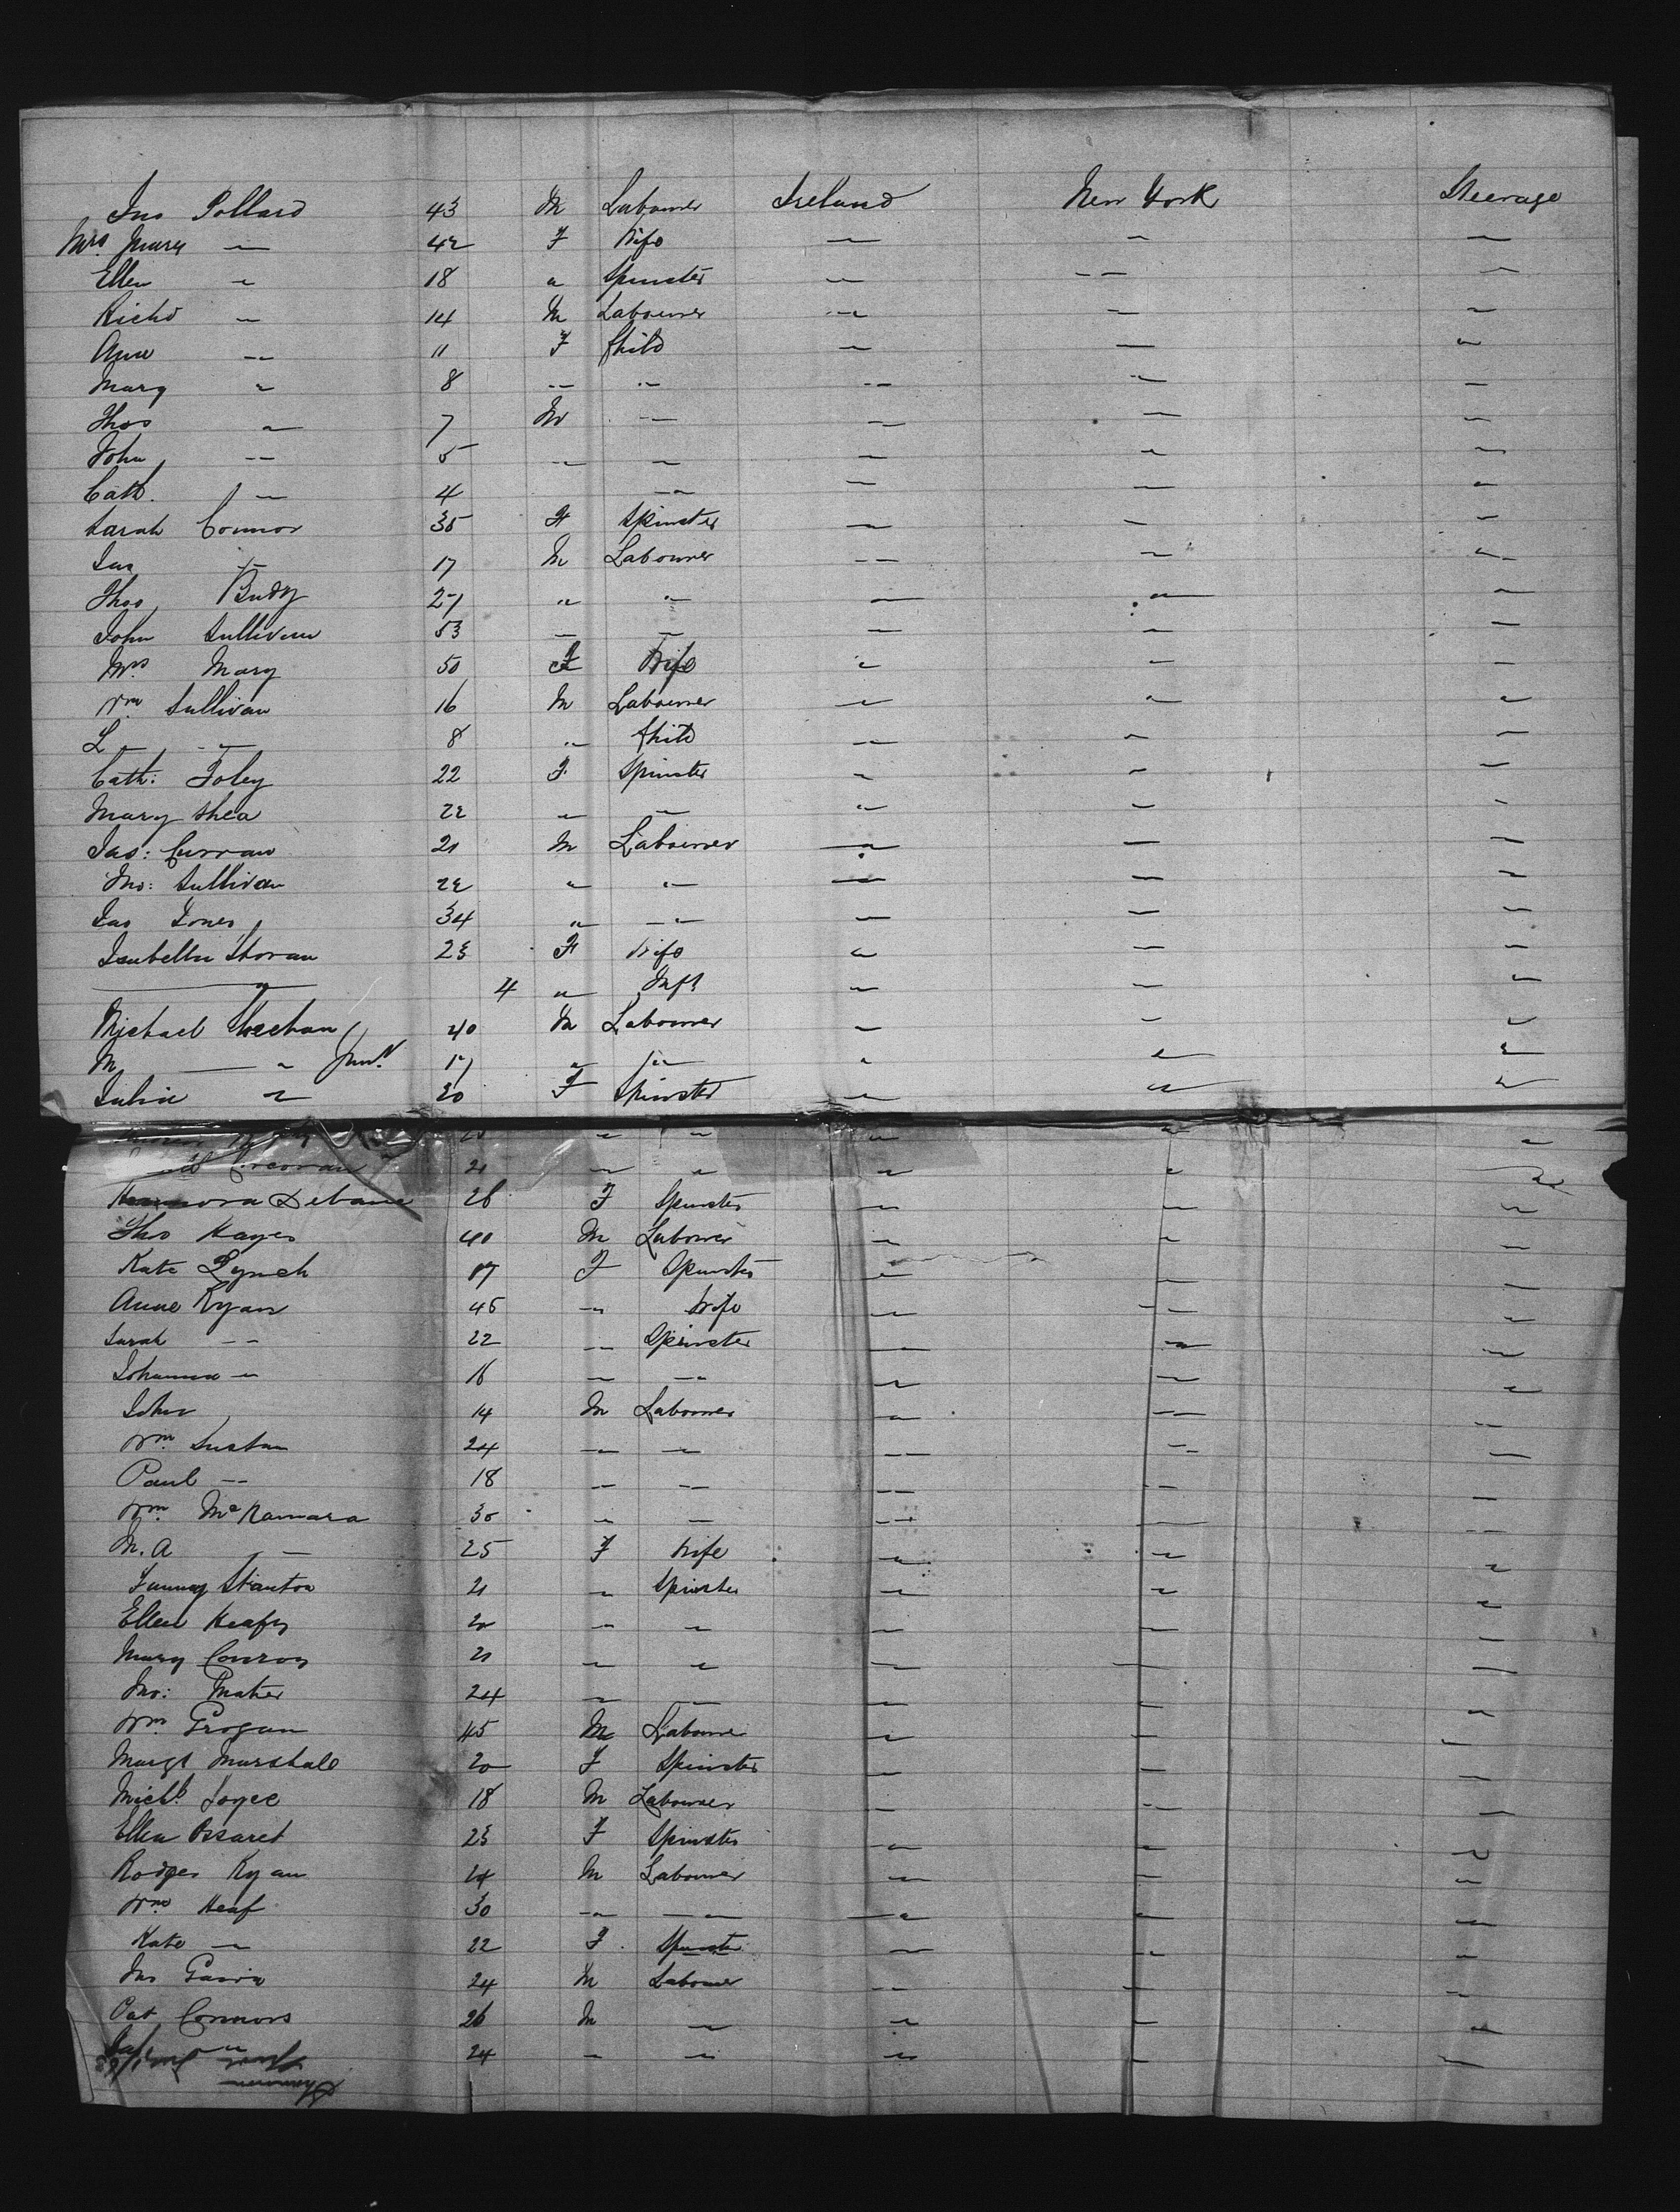 Jno Pollard 43 M Labourer Ireland New York Steerage
Mrs. Mary — 42 F Wife — — —
Ellen " 18 " Spinster — — —
Richd — 14 M Labourer — — —
Ann — 11 F Child — — "
Mary " 8 — " — " —
Thos " 7 M — — — —
John — 5 — — — — —
Cath. — 4 — — — "
Sarah Connor 35 F Spinster — — —
Jas — 17 M Labourer — — —
Thos 27 " " — — —
John Sullivan 53 — — — — —
Mrs Mary 50 F Wife " — —
Wm Sullivan 16 M Labourer — " "
L — — 8 " Child — — —
Cath: Foley 22 F Spinster — — —
Mary Shea 22 — — " — —
Jas: Curran 21 M Labourer — — —
Jno: Sullivan 22 " " — — —
Jas Jones 34 " — — — —
Isabella Horan 23 F Wife — — —
— " 4 " Inft — — —
Michael Sheehan 40 M Labourer — — —
M — " Junr. 17 " " " — —
Julia " 20 F Spinster — — —
— — — — —
Corcoran 21 — — — — —
Debane 26 F Spinster — — —
Tho Hayes 40 M Labourer — — —
Kate Lynch 17 F Spinster — — —
Anne Ryan 45 " Wife — — —
Sarah — 22 — Spinster — — —
Johanna — 16 — — — — —
John 14 M Labourer — — —
Wm 24 — — — — —
Paul — 18 — — — — —
Wm. McNamara 30 — — — — —
M. A — 25 F Wife — — —
Fanny Stanton 21 " Spinster — — —
Ellen Heafy 20 — — — — —
Mary Conroy 21 — — — — —
Jno: Maher 24 — — — — —
Wm Grogan 45 M Labourer — — —
Margt Marshall 20 F Spinster — — —
Michl. Joyce 18 M Labourer — — —
Ellen 23 F Spinster — — —
Rodger Ryan 24 M Labourer — — —
Wm Heaf 30 — — — — —
Kate — 22 F Spinster — — —
Jno 24 M Labourer — — —
Pat Connors 26 M — — — —
" 24 — — — — —